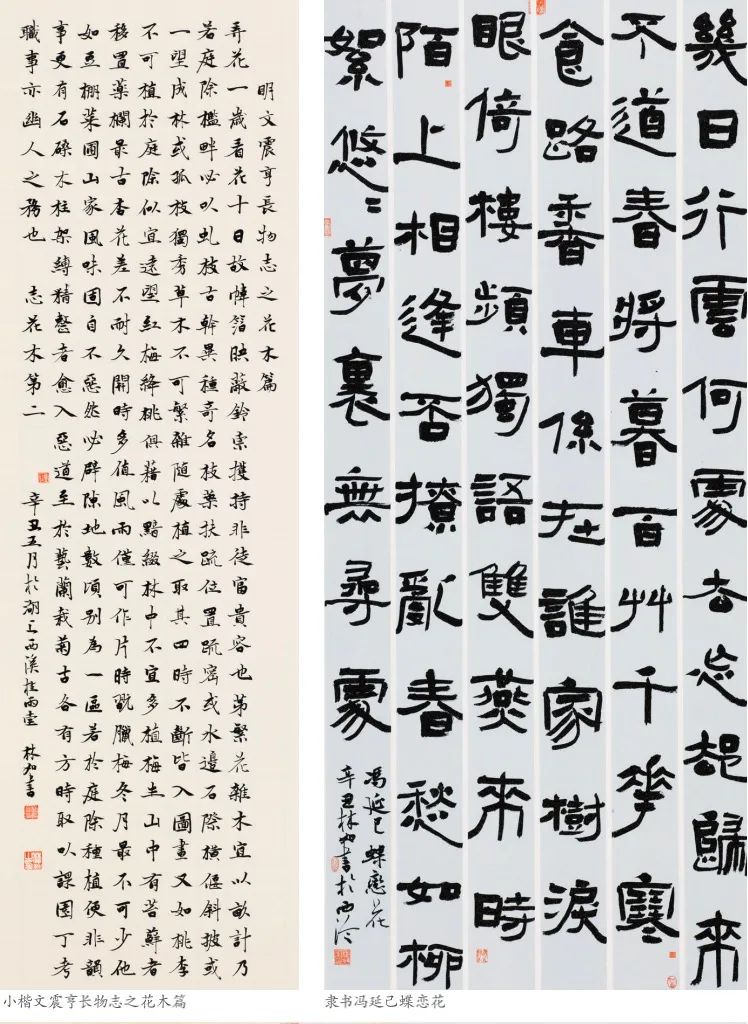 明文震亨長物志之花木篇
弄花一歲看花十日故幃箔映蔽鈴索護持非徒富貴容也第繁花雜木宜以畝計乃
若庭除檻畔必以虬枝古幹異種奇名枝葉扶疏位置疏密或水邊石際橫偃斜披或
一望成林或孤枝獨秀草木不可繁雜隨處植之取其四時不斷皆入圖畫又如桃李
不可植於庭除似宜遠望紅梅絳桃俱藉以點綴林中不宜多植梅生山中有苔蘚者
移置藥欄最古杏花差不耐久開時多值風雨僅可作片時翫臘梅冬月最不可少他
如豆棚菜圃山家風味固自不惡然必辟隙地數頃別為一區若於庭除種植便非韻
事更有石磉木柱架縛精整者愈入惡道至於藝蘭栽菊古各有方時取以課園丁考
職事亦幽人之務也 志花木第二
辛丑五月於湖上西溪桂雨堂 林如書
小楷文震亨长物志之花木篇
幾日行雲何處去忘却歸來
不道春將暮百艸千花寒
食路香車係在誰家樹淚
眼倚樓頻獨語雙燕來時
陌上相逢否撩亂春愁如柳
絮悠〻夢裏無尋處
冯延巳蝶戀花
辛丑林如書於西泠
隶书冯延己蝶恋花